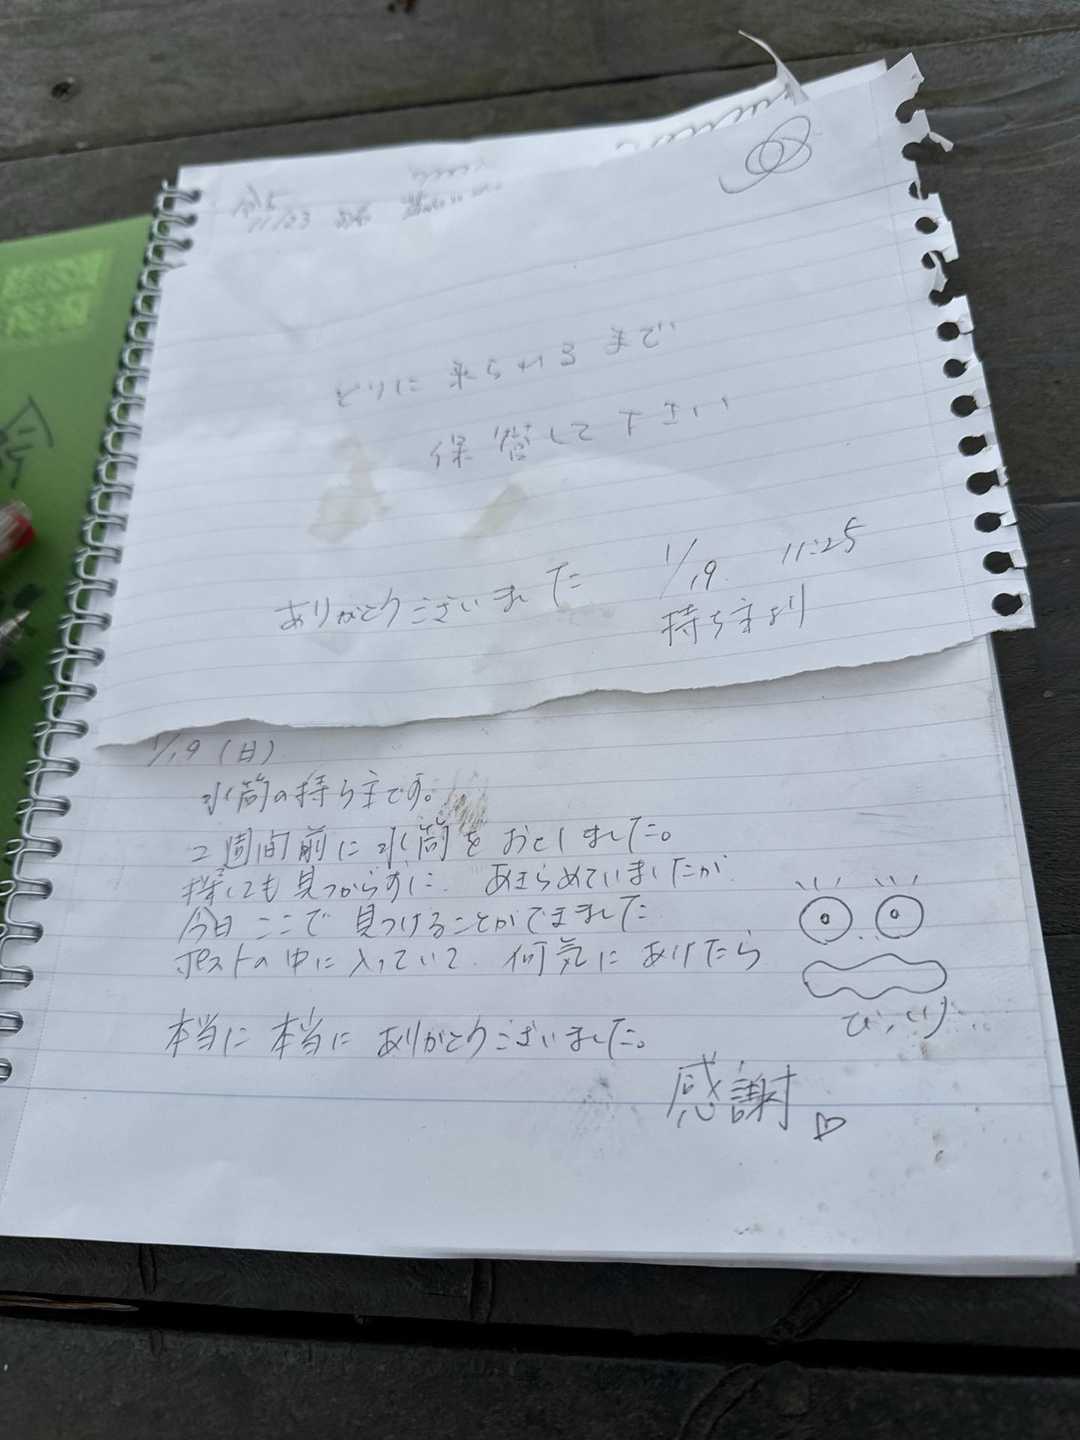 11/23
とりに来られるまで
保管して下さい
ありがとうございました 1/19 11:25
持ち主より
1/19(日)
水筒の持ち主です。
2週間前に水筒をおとしました。
探しても見つからずに、あきらめていましたが
今日ここで見つけることができました
ポストの中に入っていて、何気にあけたら
びっくり
本当に本当にありがとうございました。
感謝♡